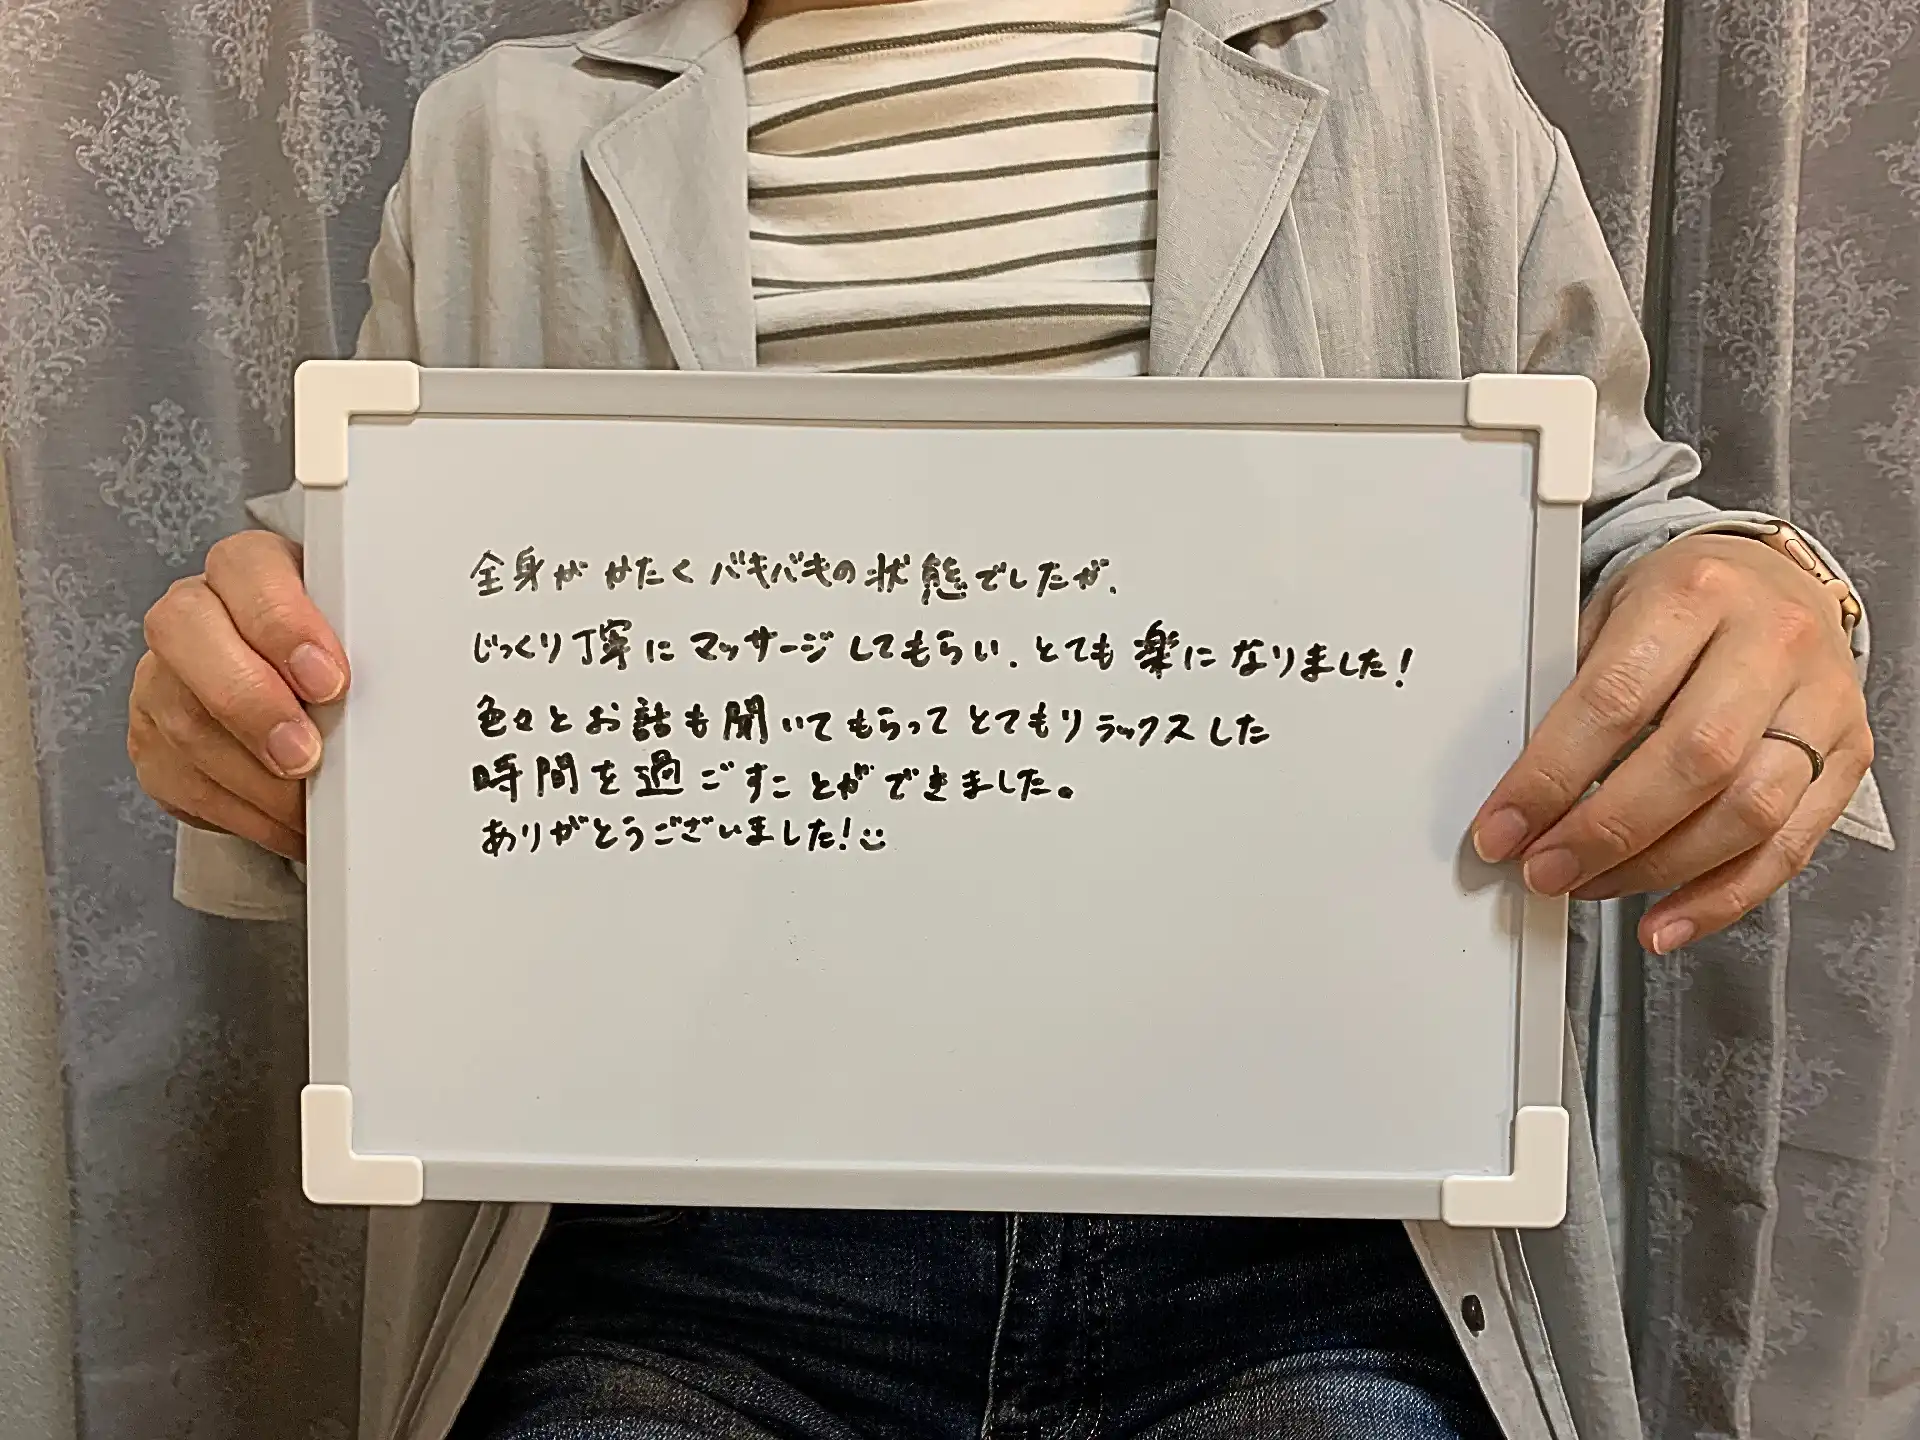 全身が かたく バキバキの状態でしたが、
じっくり丁寧に マッサージしてもらい、とても楽になりました!
色々とお話も聞いてもらってとてもリラックスした
時間を過ごすことができました。
ありがとうございました!